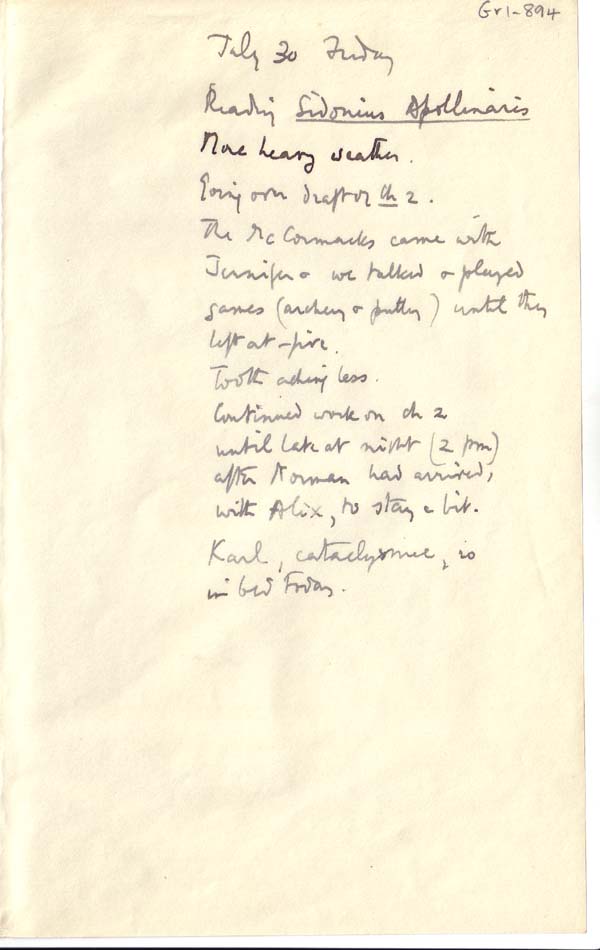 Gr1-894
July 30 Friday
Reading Sidonius Apollinaris
More heavy weather.
Going over draft of ch 2.
The McCormacks came with
Jennifer & we talked & played
games (archery & putting) until they
left at five.
Tooth aching less.
Continued work on ch 2
until late at night (2 pm)
after Norman had arrived,
with Alix, to stay a bit.
Karl, cataclysmic, is
in bed today.